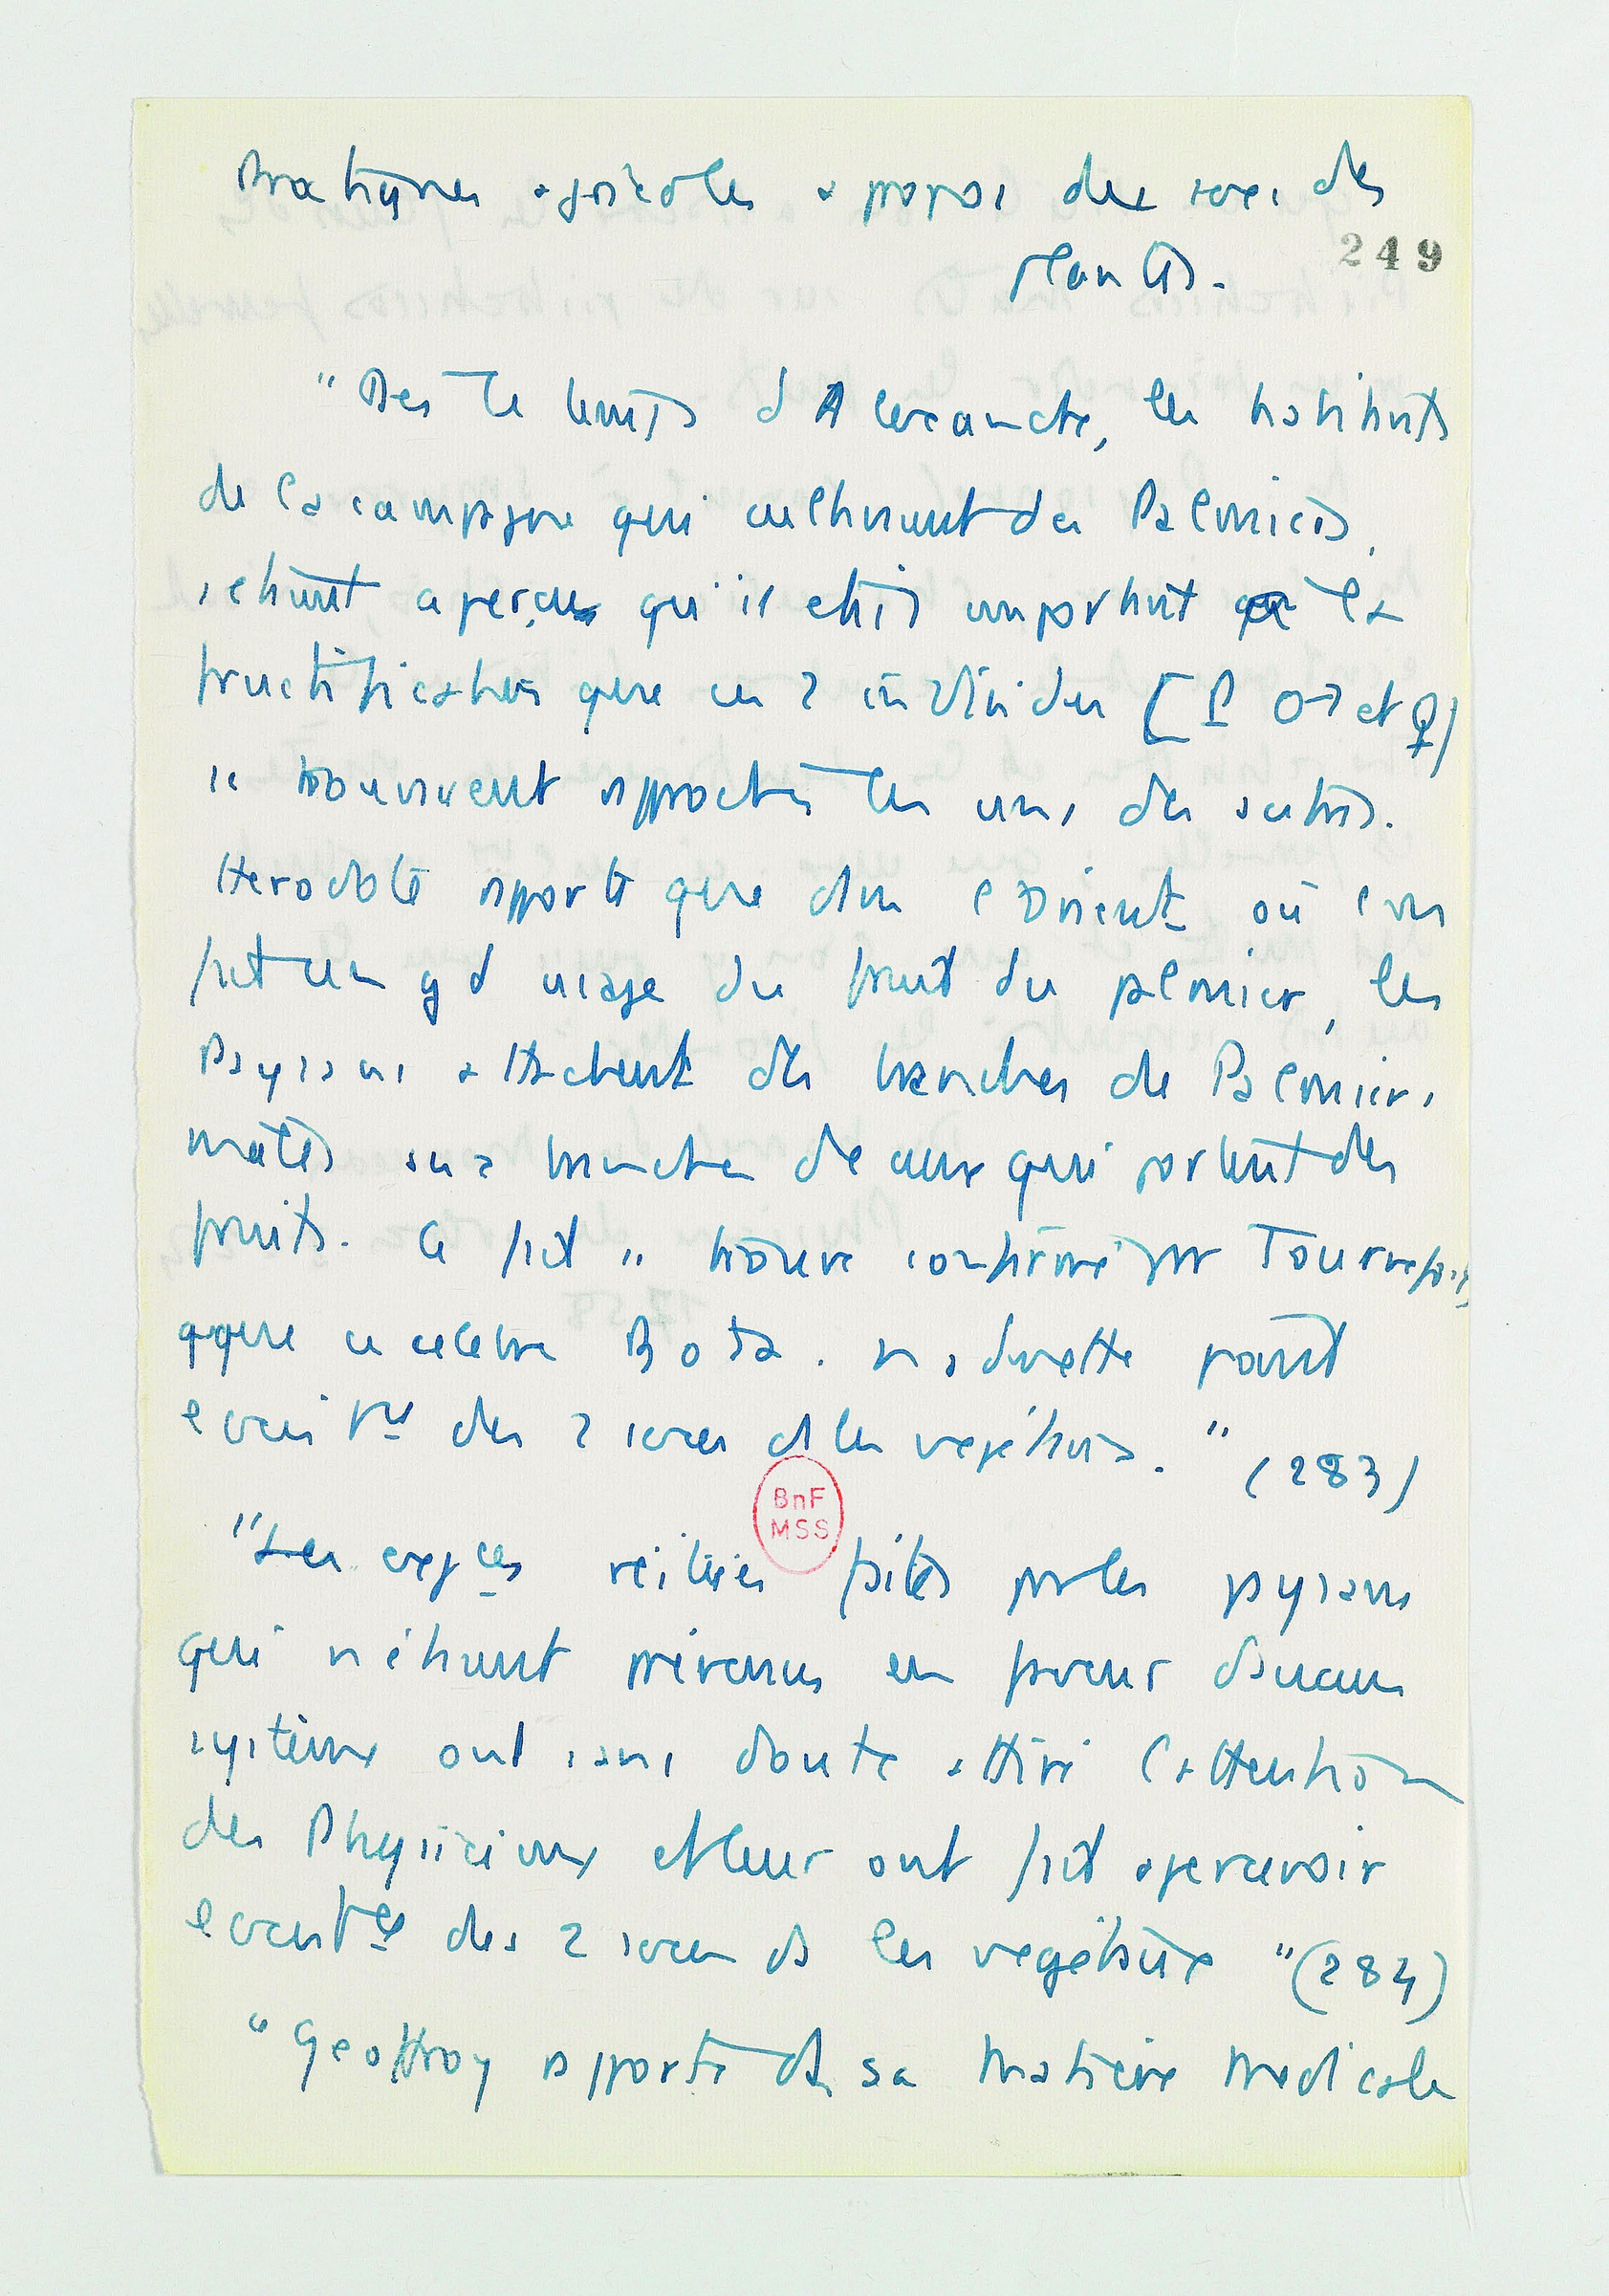 Pratiques agricoles a propos des sexes des
plantes.
249
"Des le temps d'Alexandre, les habitants
de la campagne qui cultivent des Palmiers,
s'etaient aperçus qu'il etait important à la
fructification que ces 2 individus [P ♂ et ♀]
se trouvent rapprochés les uns des autres.
Herodote rapporte que dans l'Orient où l'on
fait un gd usage du fruit du palmier, les
Paysans attachent des branches de Palmiers
mâles aux branches de ceux qui portent des
fruits. Ce fait se trouve confirmé par Tournefort,
qque ce celebre Bota. n'admette point
l'exis^tce des 2 sexes ds les végétaux." (283)
BnF
MSS
"Les exp^ces réitérées faites par les paysans
qui n'étaient prévenus en faveur d'aucun
système ont sans doute attiré l'attention
des Physiciens et leur ont fait apercevoir
l'exist^ce des 2 sexes ds les végétaux" (284)
"Geoffroy rapporte ds sa Matière Medicale